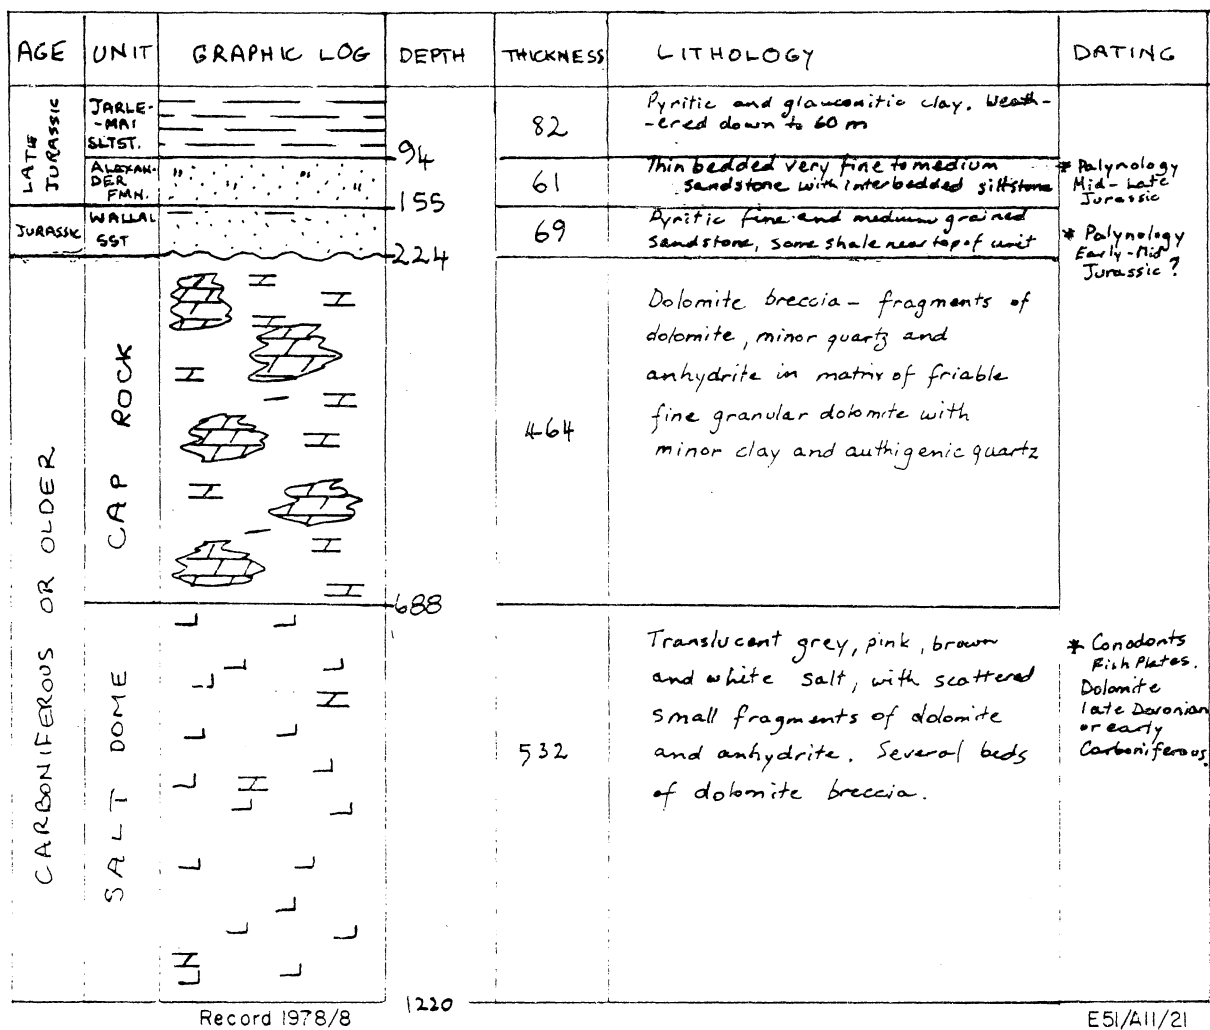 AGE UNIT GRAPHIC LOG DEPTH THICKNESS LITHOLOGY DATING
LATE JURASSIC
JARLE-
-MAI
SLTST.
94
82
Pyritic and glauconitic clay. Weath-
-ered down to 60 m
ALEXAN-
DER
FMN.
155
61
Thin bedded very fine to medium
sandstone with interbedded siltstone
* Palynology
Mid-Late
Jurassic
JURASSIC
WALLAL
SST
224
69
Pyritic fine and medium grained
sandstone, some shale near top of unit
* Palynology
Early-Mid
Jurassic?
CARBONIFEROUS OR OLDER
CAP ROCK
688
464
Dolomite breccia – fragments of
dolomite, minor quartz and
anhydrite in matrix of friable
fine granular dolomite with
minor clay and authigenic quartz
SALT DOME
1220
532
Translucent grey, pink, brown
and white salt, with scattered
small fragments of dolomite
and anhydrite. Several beds
of dolomite breccia.
* Conodonts
Fish Plates.
Dolomite
late Devonian
or early
Carboniferous.
Record 1978/8
E51/A11/21